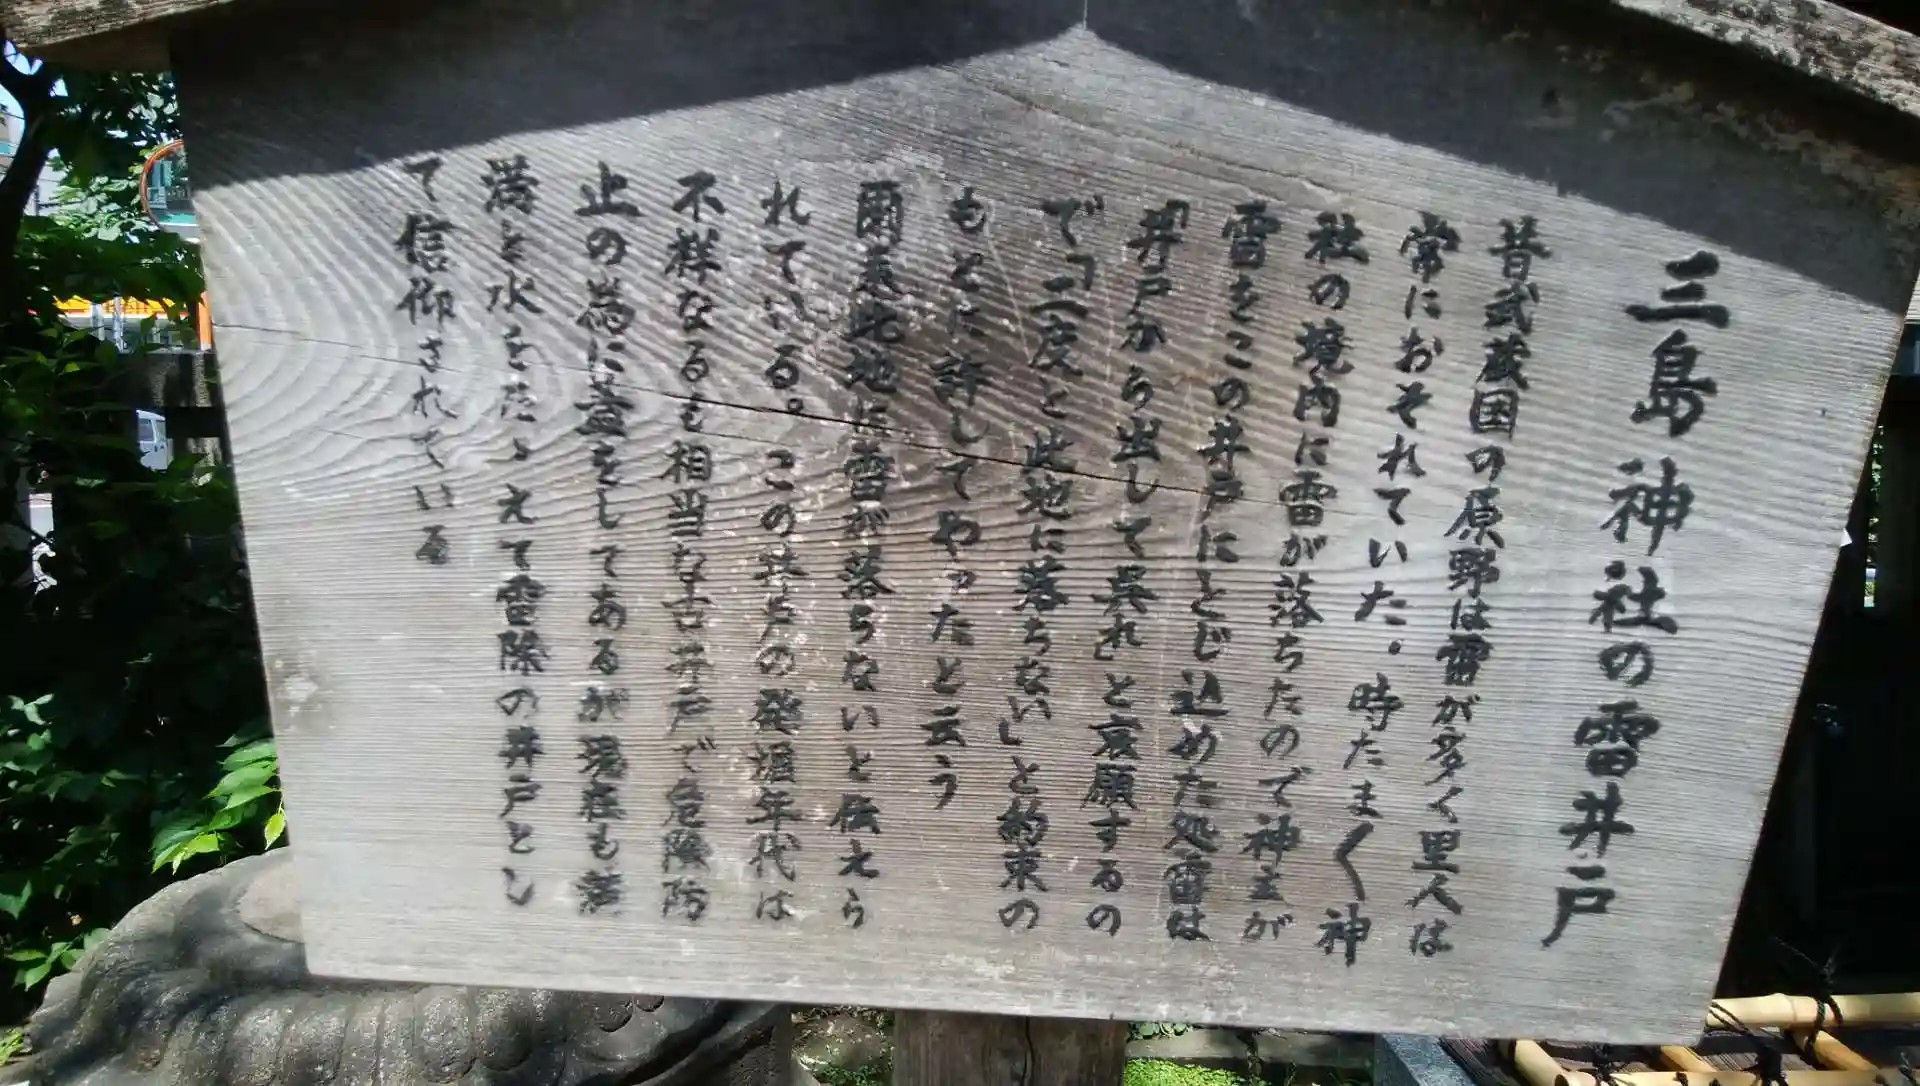 三島神社の雷井戸
昔武蔵国の原野は雷が多く里人は
常におそれていた。時たま〱神
社の境内に雷が落ちたので神主が
雷をこの井戸にとじ込めた処雷は
「井戸から出して呉れ」と哀願するの
で「二度と此地に落ちない」と約束の
もとに許してやったと云う
爾来此地に雷が落ちないと伝えら
れている。この井戸の発掘年代は
不祥なるも相当な古井戸で危険防
止の為に蓋をしてあるが現在も満
満と水をたゝえて雷除の井戸とし
て信仰されている